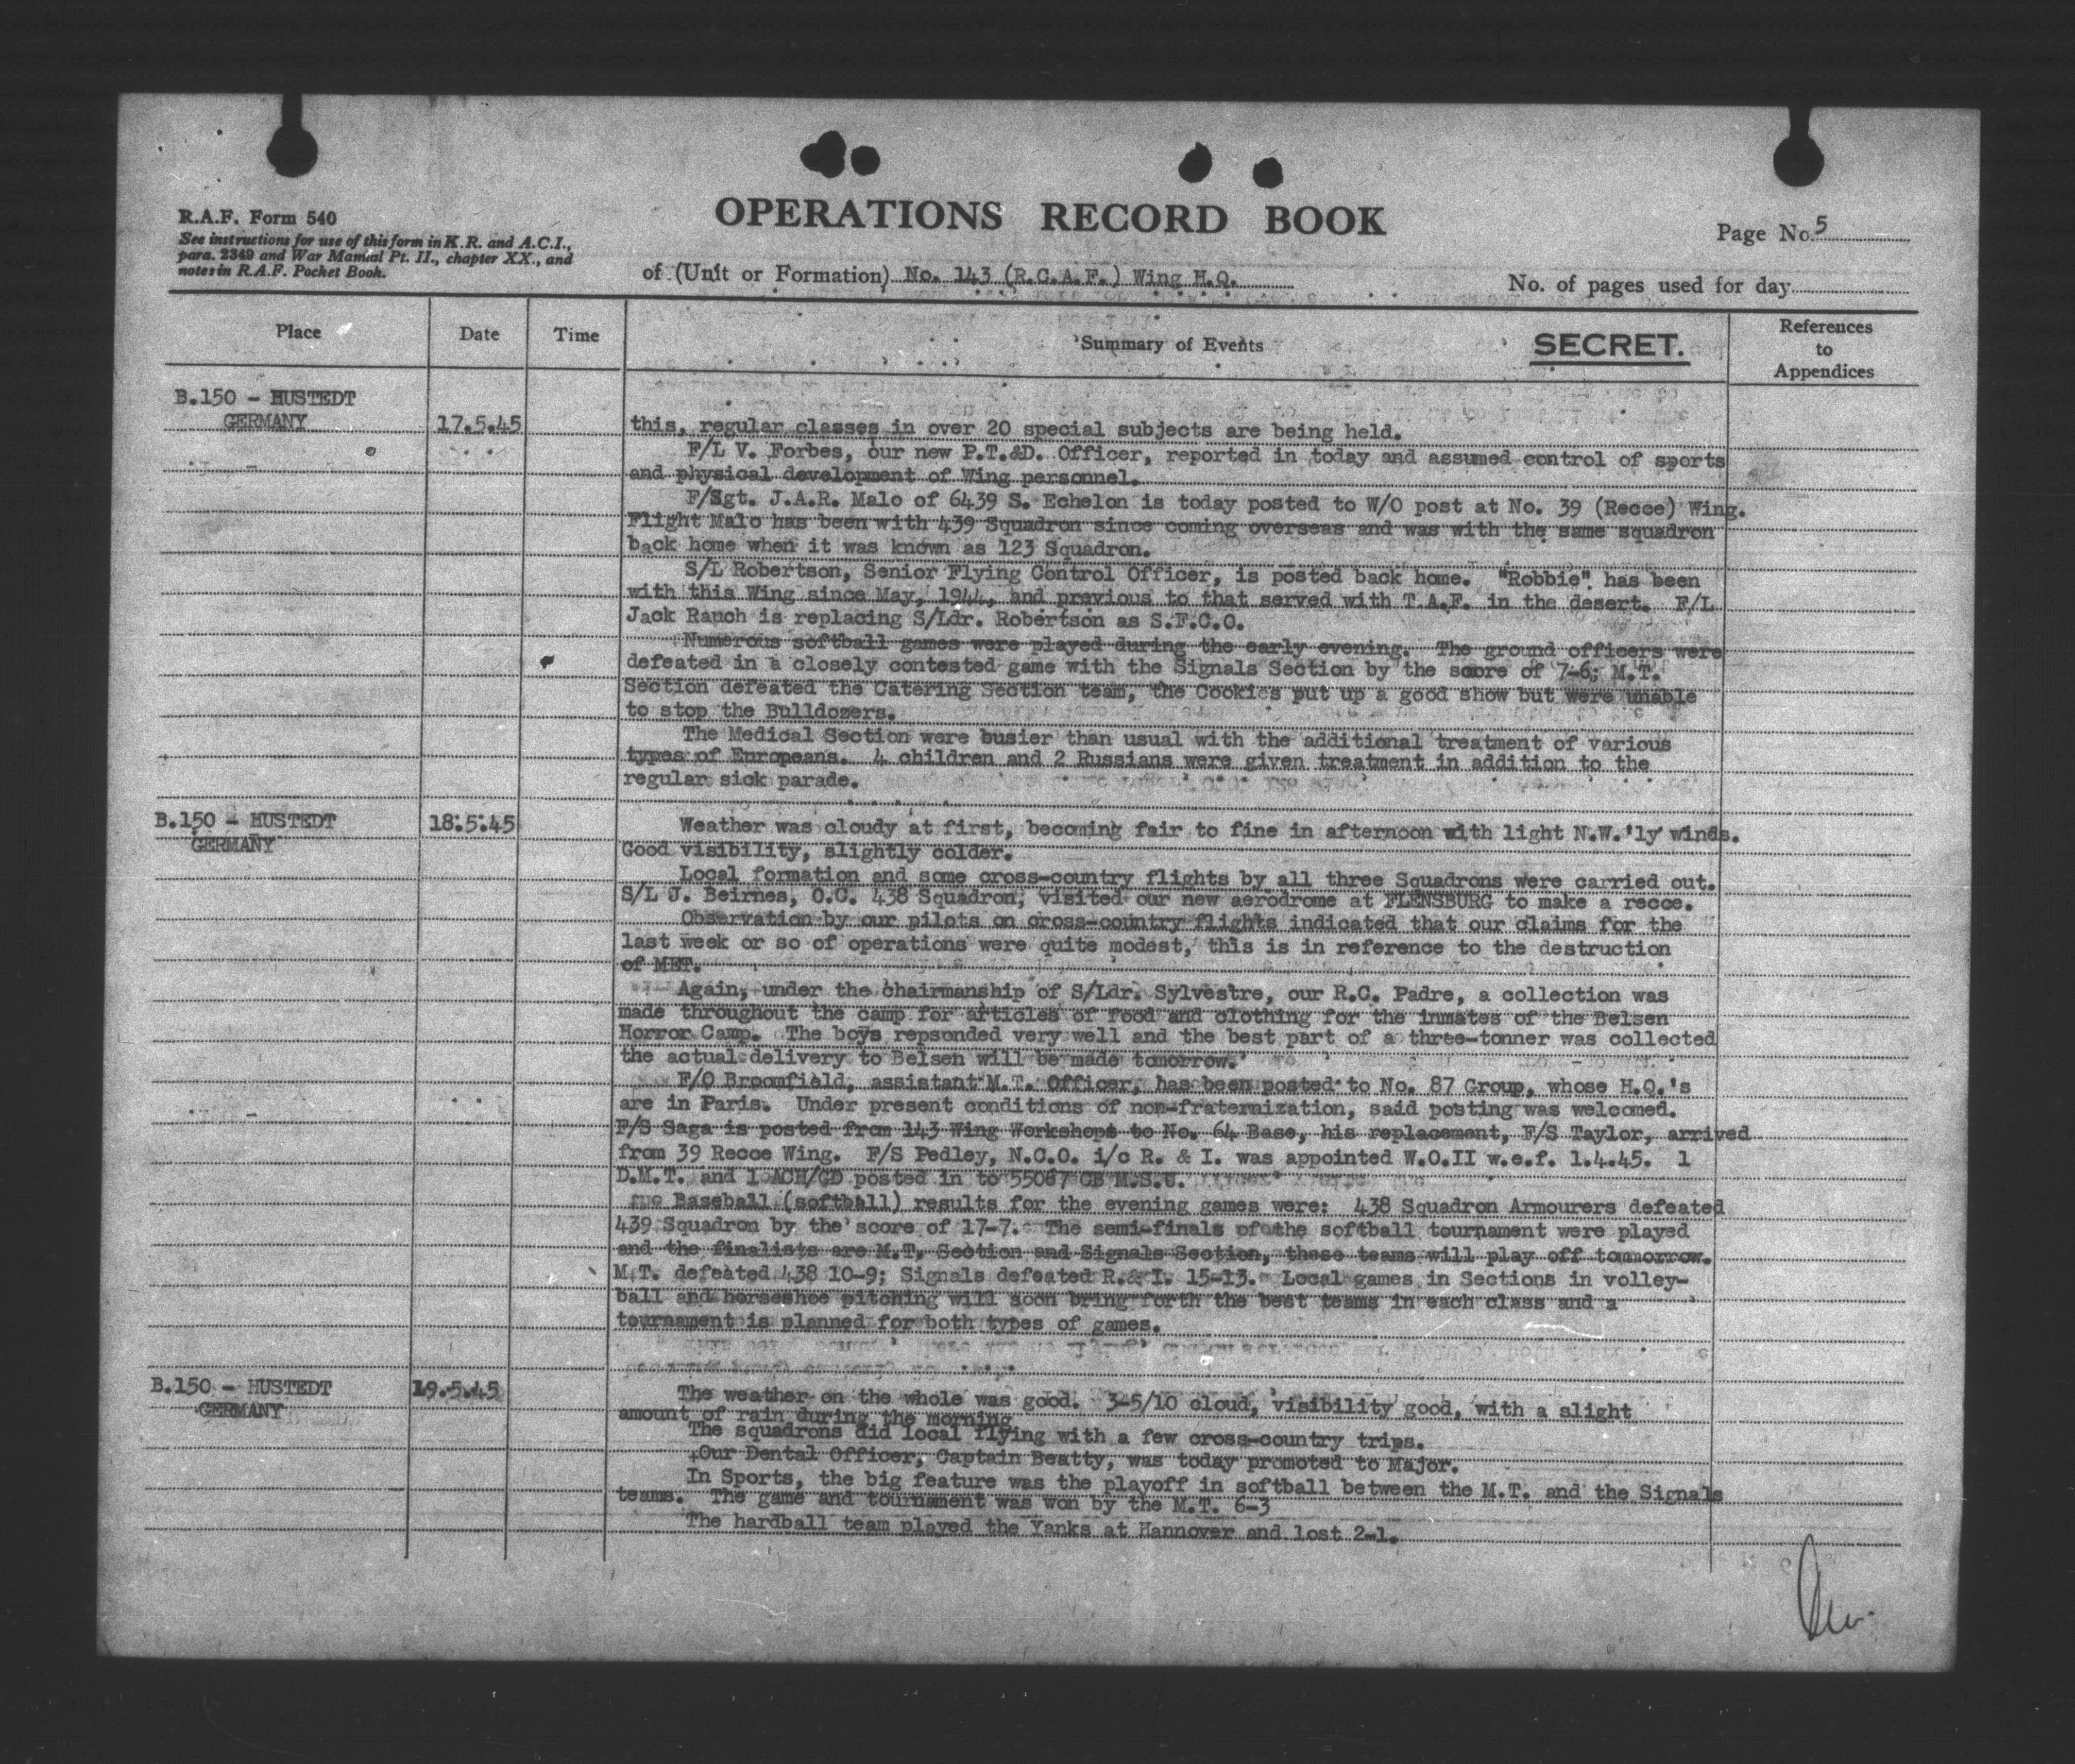 R.A.F. Form 540
See instructions for use of this form in K.R. and A.C.I.,
para. 2349 and War Manual Pt. II., chapter XX., and
notes in R.A.F. Pocket Book.
OPERATIONS RECORD BOOK
Page No. 5
of (Unit or Formation) No. 143 (R.C.A.F.) Wing H.Q.
No. of pages used for day
Place
Date
Time
Summary of Events
SECRET.
References
to
Appendices
B.150 - HUSTEDT
GERMANY
17.5.45
this, regular classes in over 20 special subjects are being held.
F/L V. Forbes, our new P.T.&D. Officer, reported in today and assumed control of sports
and physical development of Wing personnel.
F/Sgt. J.A.R. Malo of 6439 S. Echelon is today posted to W/O post at No. 39 (Recce) Wing.
Flight Malo has been with 439 Squadron since coming overseas and was with the same squadron
back home when it was known as 123 Squadron.
S/L Robertson, Senior Flying Control Officer, is posted back home. "Robbie" has been
with this Wing since May, 1944, and previous to that served with T.A.F. in the desert. F/L
Jack Rauch is replacing S/Ldr. Robertson as S.F.C.O.
Numerous softball games were played during the early evening. The ground officers were
defeated in a closely contested game with the Signals Section by the score of 7-6; M.T.
Section defeated the Catering Section team, the Cookies put up a good show but were unable
to stop the Bulldozers.
The Medical Section were busier than usual with the additional treatment of various
types of Europeans. 4 children and 2 Russians were given treatment in addition to the
regular sick parade.
B.150 - HUSTEDT
GERMANY
18.5.45
Weather was cloudy at first, becoming fair to fine in afternoon with light N.W.'ly winds.
Good visibility, slightly colder.
Local formation and some cross-country flights by all three Squadrons were carried out.
S/L J. Beirnes, O.C. 438 Squadron, visited our new aerodrome at FLENSBURG to make a recce.
Observation by our pilots on cross-country flights indicated that our claims for the
last week or so of operations were quite modest, this is in reference to the destruction
of MET.
Again, under the chairmanship of S/Ldr. Sylvestre, our R.C. Padre, a collection was
made throughout the camp for articles of food and clothing for the inmates of the Belsen
Horror Camp. The boys repsonded very well and the best part of a three-tonner was collected
the actual delivery to Belsen will be made tomorrow.
F/O Broomfield, assistant M.T. Officer, has been posted to No. 87 Group, whose H.Q.'s
are in Paris. Under present conditions of non-fraternization, said posting was welcomed.
F/S Saga is posted from 143 Wing Workshops to No. 64 Base, his replacement, F/S Taylor, arrived
from 39 Recce Wing. F/S Pedley, N.C.O. i/c R. & I. was appointed W.O.II w.e.f. 1.4.45. 1
D.M.T. and 1 ACH/GD posted in to 55067 CB M.S.U.
Baseball (softball) results for the evening games were: 438 Squadron Armourers defeated
439 Squadron by the score of 17-7. The semi-finals of the softball tournament were played
and the finalists are M.T. Section and Signals Section, these teams will play off tommorrow.
M.T. defeated 438 10-9; Signals defeated R.& I. 15-13. Local games in Sections in volley-
ball and horseshoe pitching will soon bring forth the best teams in each class and a
tournament is planned for both types of games.
B.150 - HUSTEDT
GERMANY
19.5.45
The weather on the whole was good. 3-5/10 cloud, visibility good, with a slight
amount of rain during the morning
The squadrons did local flying with a few cross-country trips.
Our Dental Officer, Captain Beatty, was today promoted to Major.
In Sports, the big feature was the playoff in softball between the M.T. and the Signals
teams. The game and tournament was won by the M.T. 6-3
The hardball team played the Yanks at Hannover and lost 2-1.